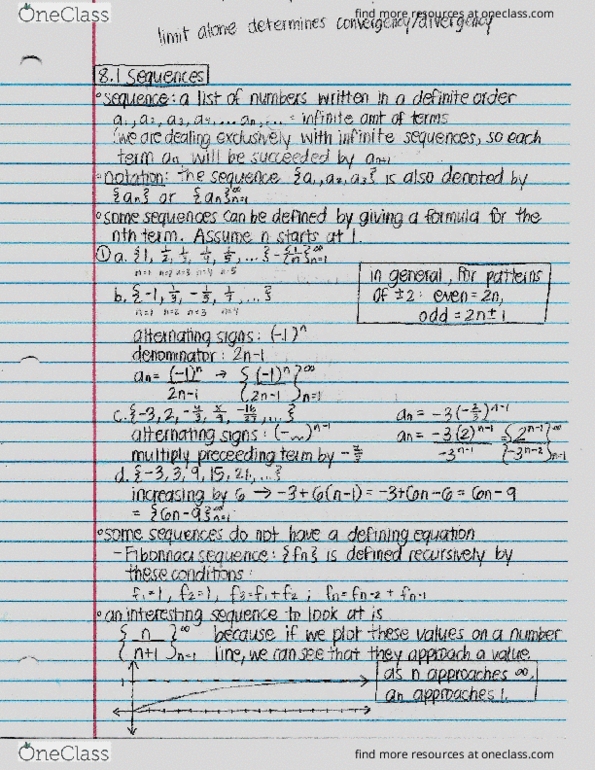 OneClass
find more resources at oneclass.com
limit alone determines convergency/divergency
8.1 Sequences
• sequence: a list of numbers written in a definite order
a₁, a₂, a₃, a₄, ... aₙ, ... = infinite amt of terms
(we are dealing exclusively with infinite sequences, so each
term aₙ will be succeeded by aₙ₊₁
• notation: the sequence {a₁, a₂, a₃} is also denoted by
{aₙ} or {aₙ}ₙ₌₁^∞
• some sequences can be defined by giving a formula for the
nth term. Assume n starts at 1.
① a. {1, 1/2, 1/3, 1/4, 1/5, ...} = {1/n}ₙ₌₁^∞
n=1 n=2 n=3 n=4 n=5
in general, for patterns
of ±2: even = 2n,
odd = 2n±1
b. {-1, 1/3, -1/5, 1/7, ...}
n=1 n=2 n=3 n=4
alternating signs: (-1)ⁿ
denominator: 2n-1
aₙ = (-1)ⁿ/2n-1 → {(-1)ⁿ/2n-1}ₙ₌₁^∞
c. {-3, 2, -4/3, 8/9, -16/27, ...} aₙ = -3(-2/3)ⁿ⁻¹
alternating signs: (-~)ⁿ⁻¹ aₙ = -3(2)ⁿ⁻¹/-3ⁿ⁻¹ = {2ⁿ⁻¹/-3ⁿ⁻²}ₙ₌₁^∞
multiply preceeding term by
d. {-3, 3, 9, 15, 21, ...}
increasing by 6 → -3+6(n-1) = -3+6n-6 = 6n-9
= {6n-9}ₙ₌₁^∞
• some sequences do not have a defining equation
- Fibonnaci sequence: {fₙ} is defined recursively by
these conditions:
f₁=1, f₂=1, f₃=f₁+f₂ ; fₙ=fₙ₋₂+fₙ₋₁
• an interesting sequence to look at is
{n/n+1}ₙ₌₁^∞ because if we plot these values on a number
line, we can see that they approach a value.
as n approaches ∞,
aₙ approaches 1.
1
OneClass
find more resources at oneclass.com